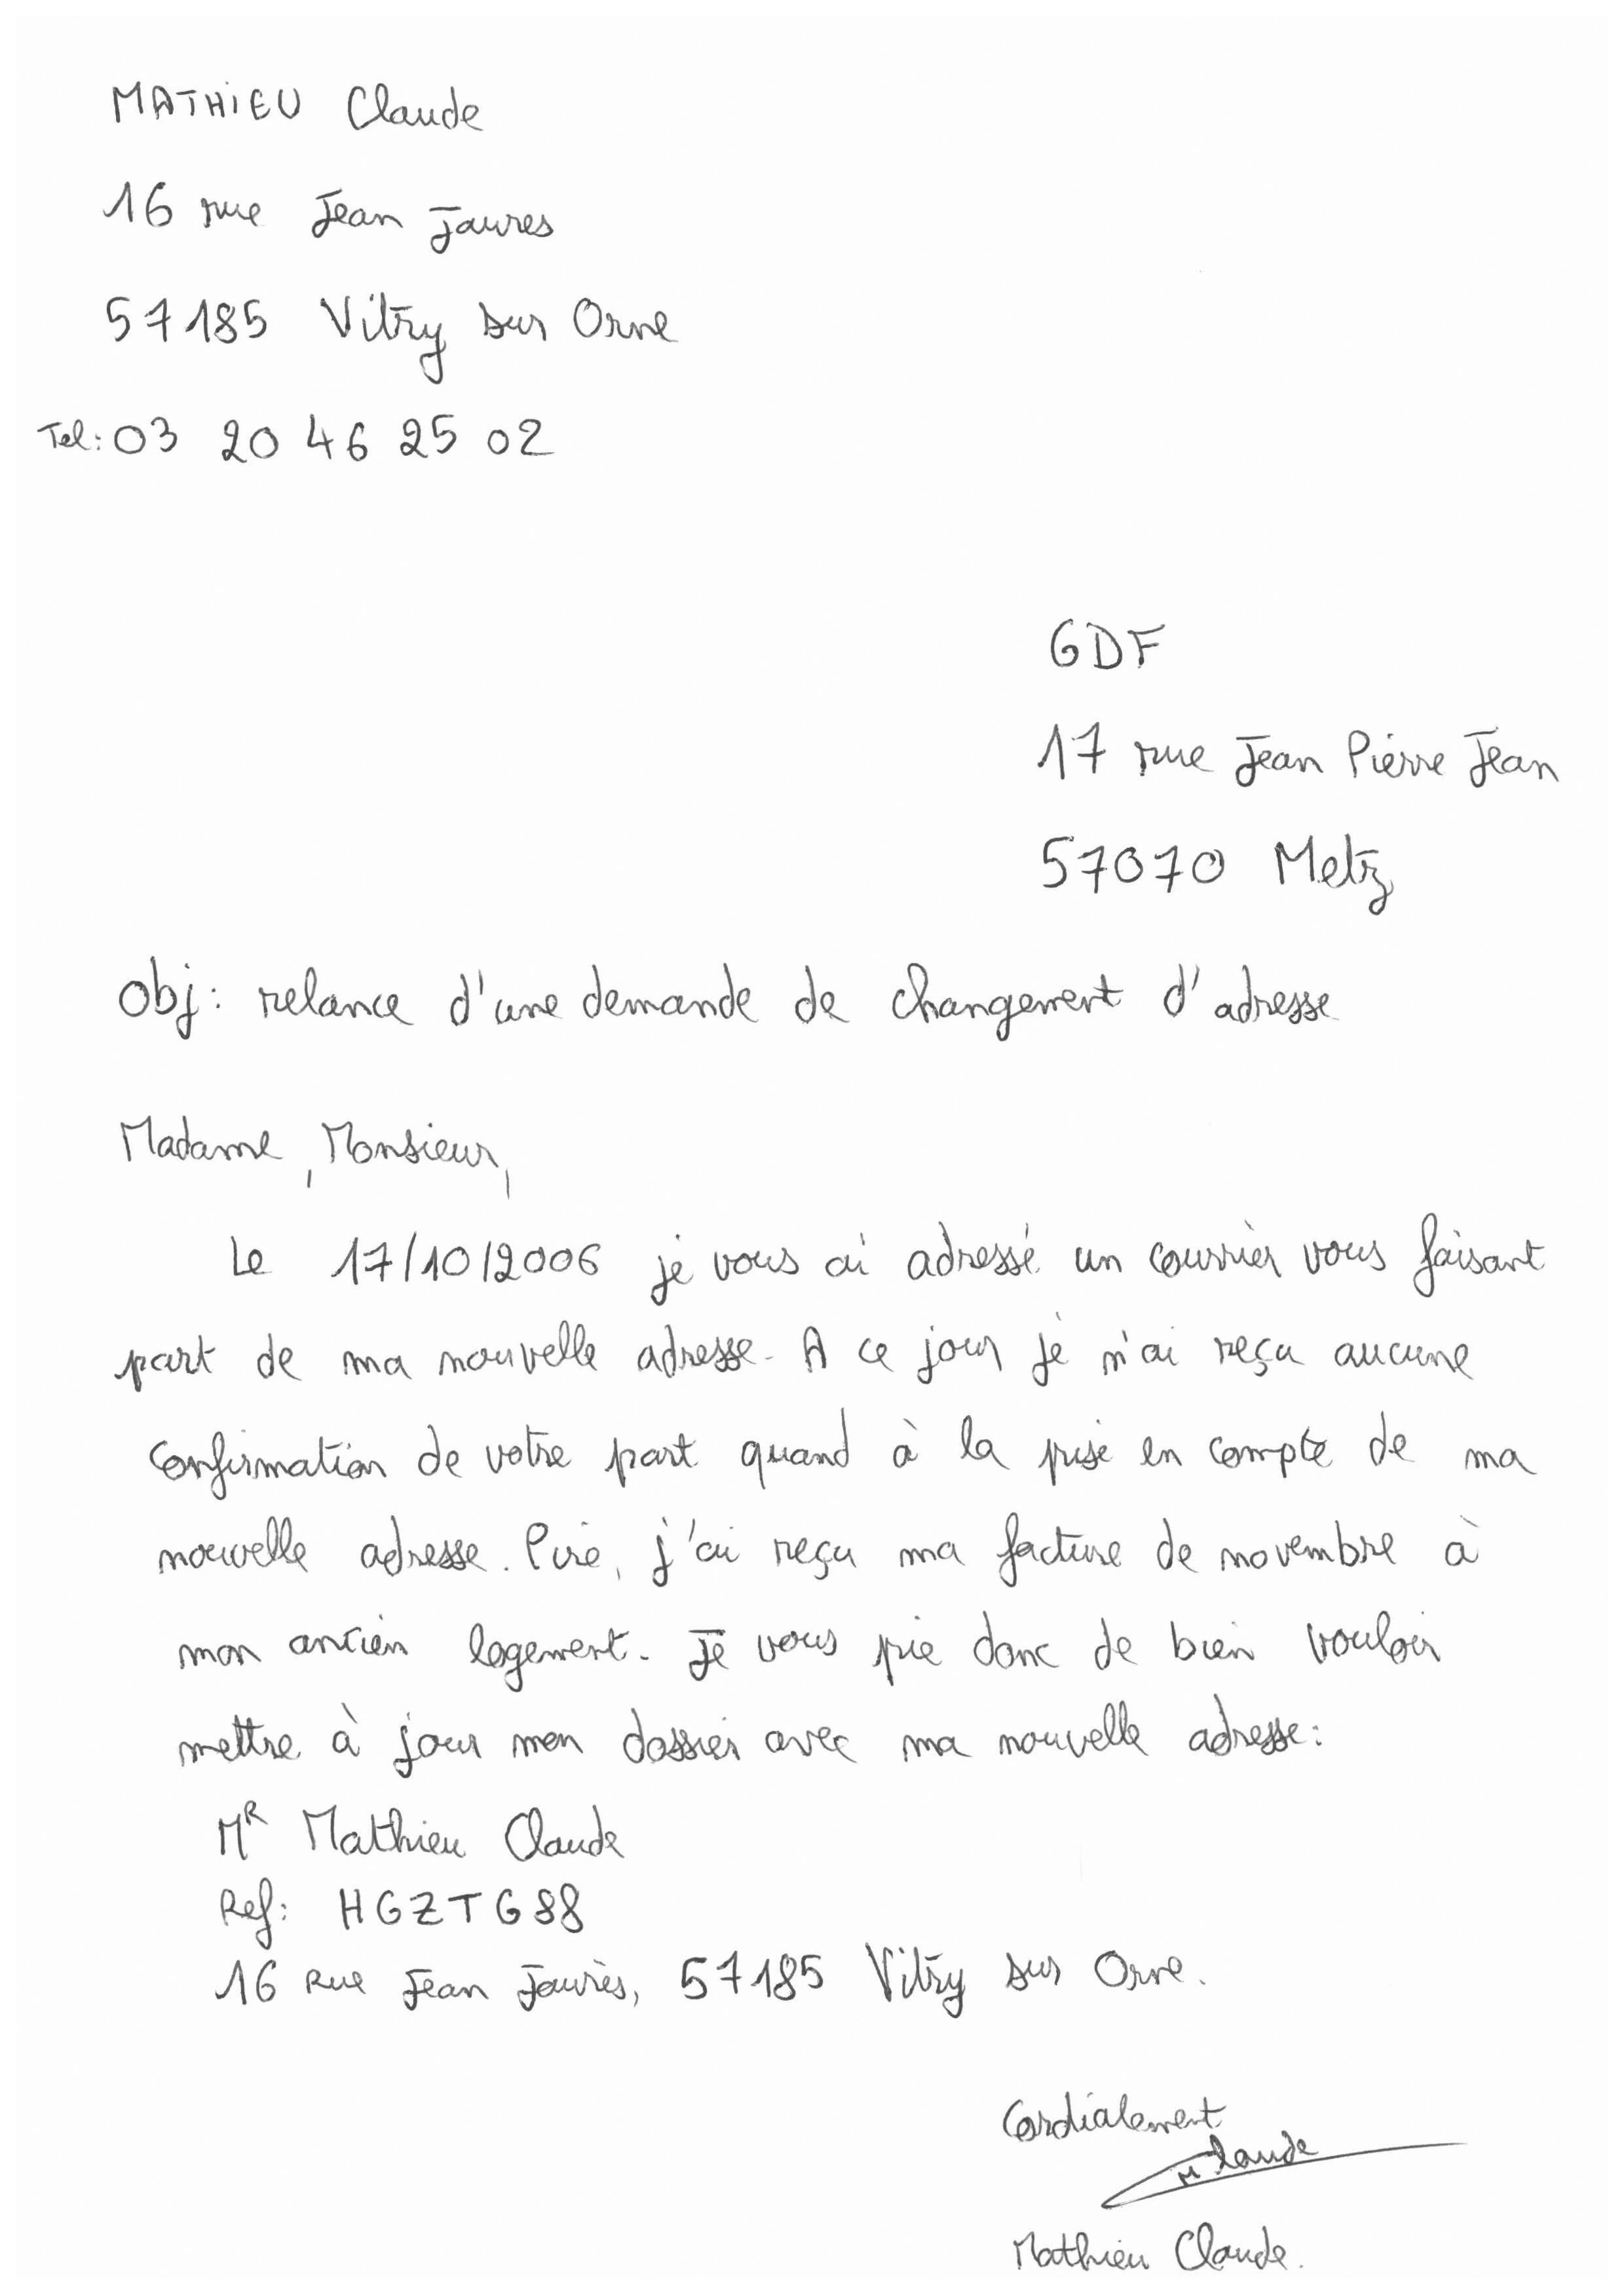 MATHIEU Claude
16 rue Jean Jaures
57185 Vitry sur Orne
Tel: 03 20 46 25 02
GDF
17 rue Jean Pierre Jean
57070 Metz
Obj: relance d'une demande de changement d'adresse
Madame, Monsieur,
Le 17/10/2006 je vous ai adressé un courrier vous faisant
part de ma nouvelle adresse. A ce jour je n'ai reçu aucune
confirmation de votre part quand à la prise en compte de ma
nouvelle adresse. Pire, j'ai reçu ma facture de novembre à
mon ancien logement. Je vous prie donc de bien vouloir
mettre à jour mon dossier avec ma nouvelle adresse:
MR Mathieu Claude
Ref: HGZTG88
16 Rue Jean Jaurès, 57185 Vitry sur Orne.
Cordialement
M Claude
Mathieu Claude.